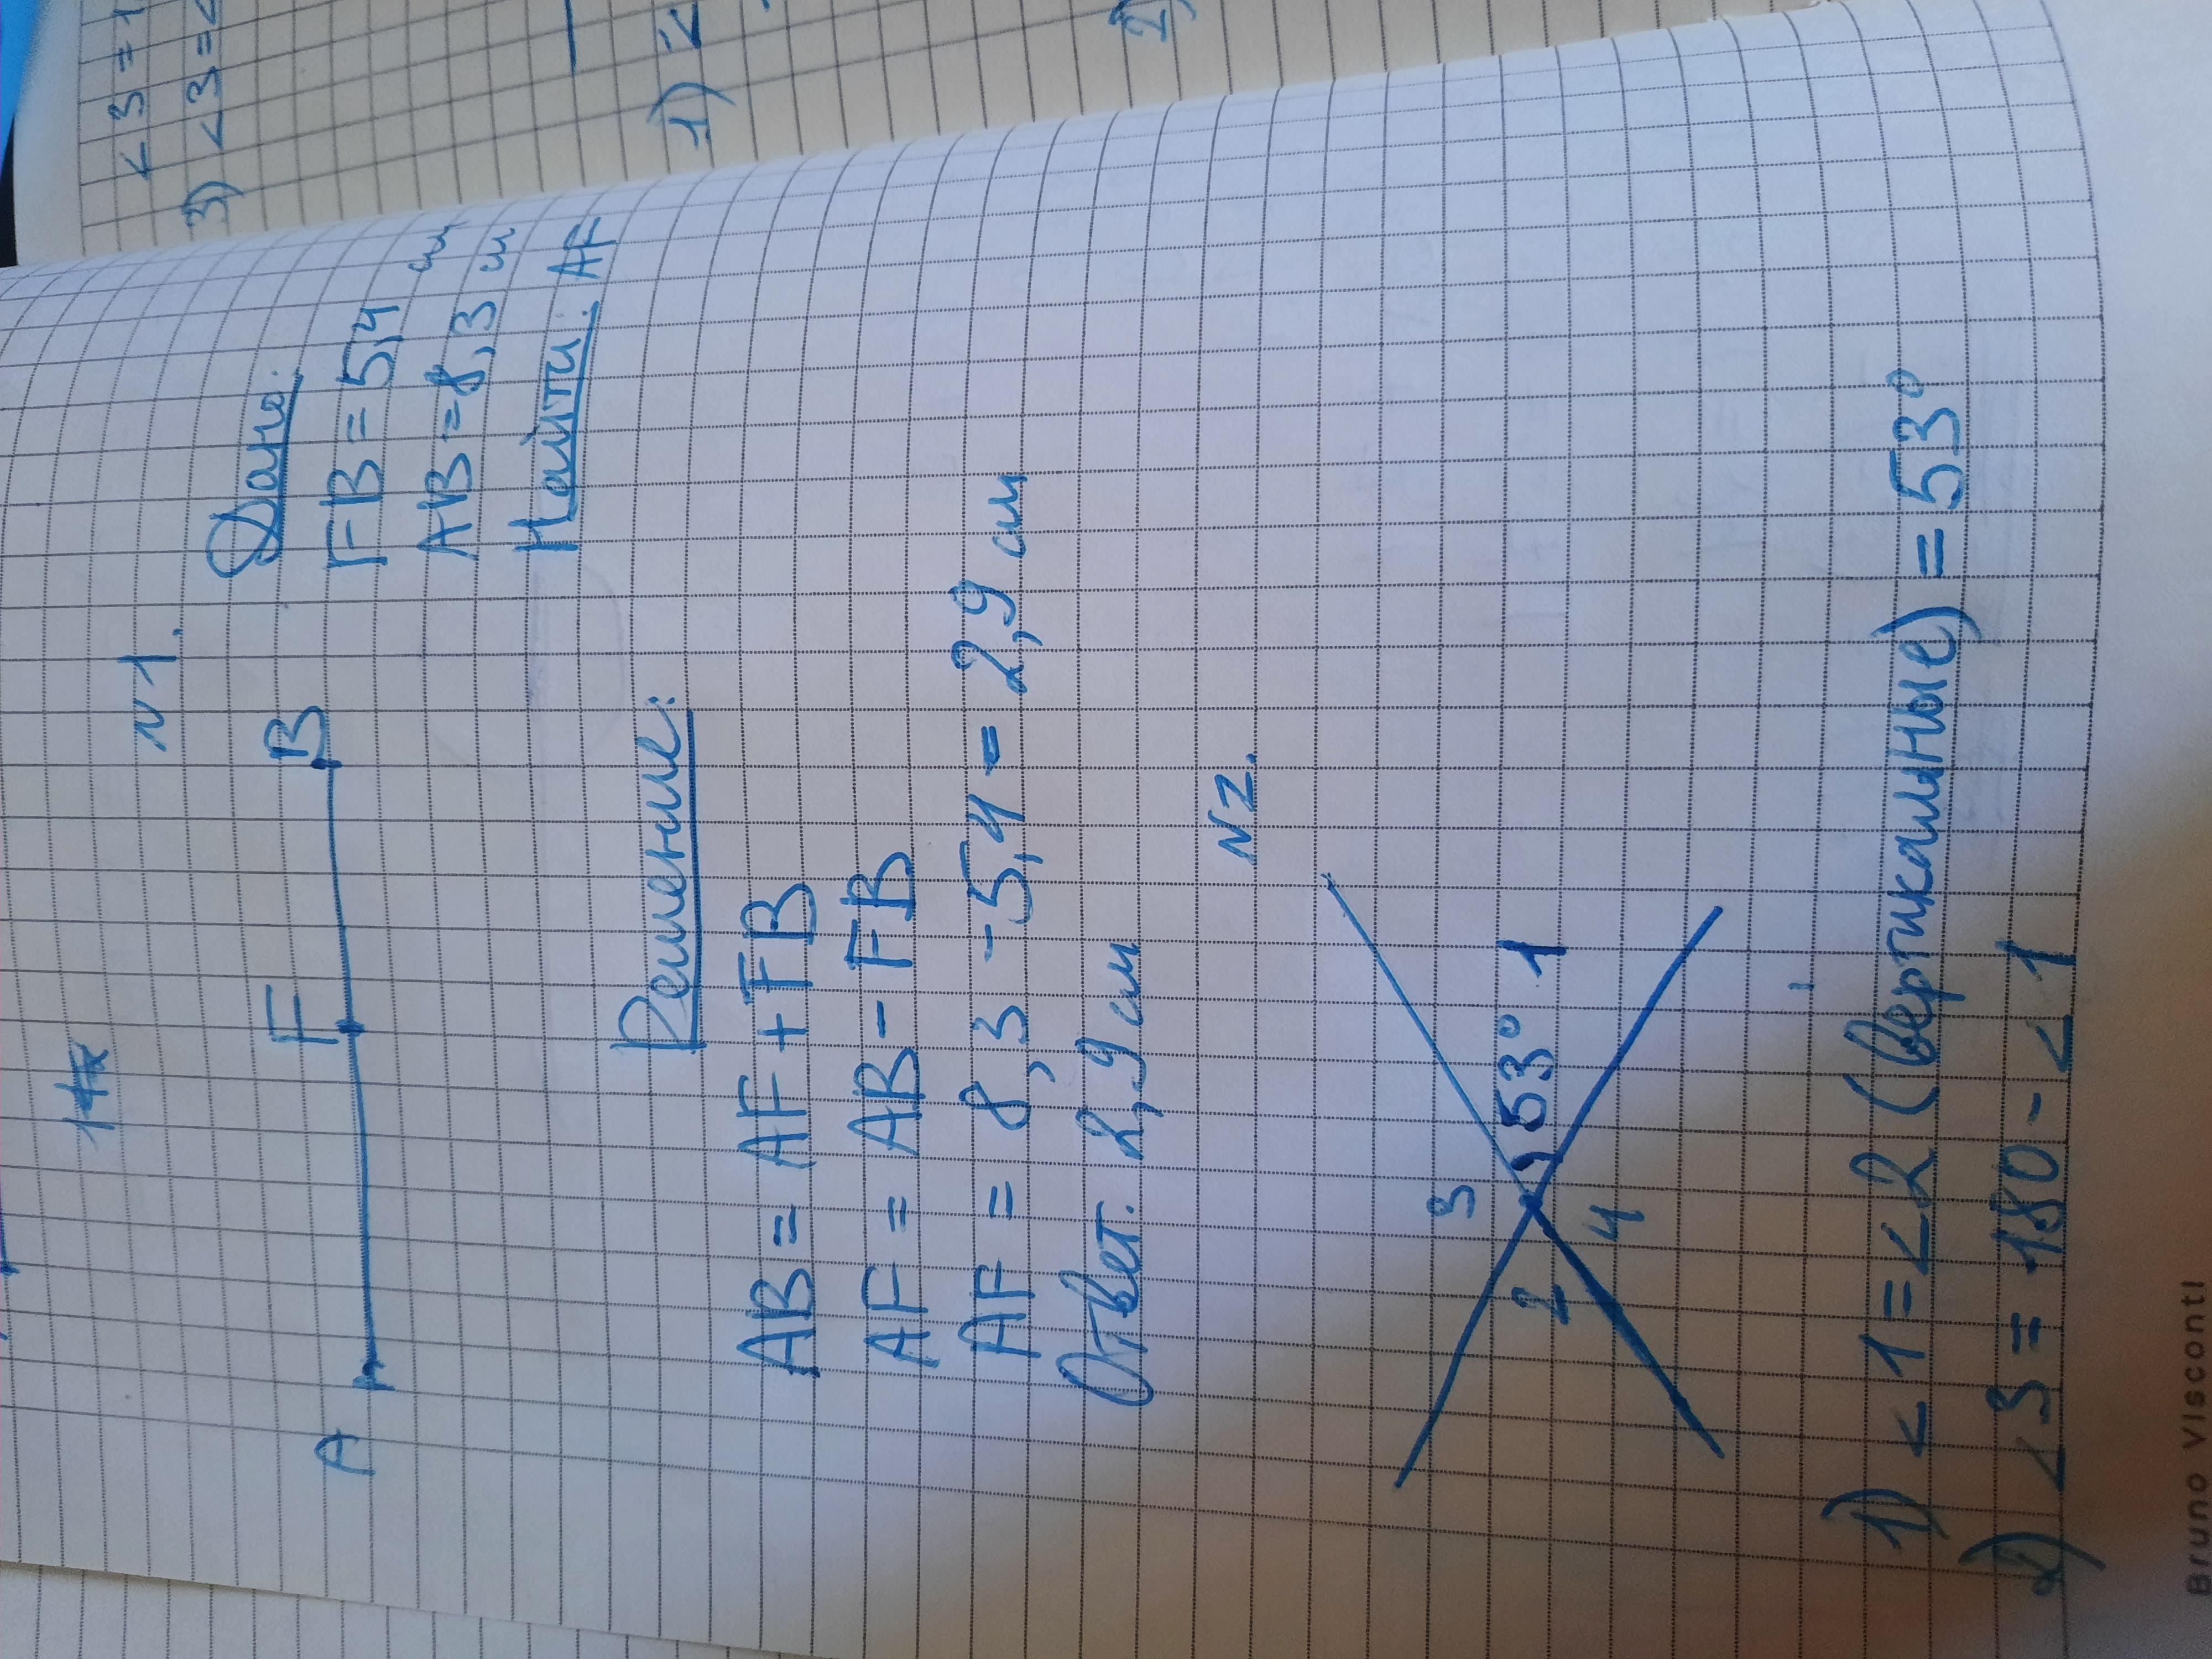 N 1.
A F B
Дано:
FB = 5,4 см
AB = 8,3 см
Найти: AF
Решение:
AB = AF + FB
AF = AB - FB
AF = 8,3 - 5,4 = 2,9 см
Ответ: 2,9 см
N 2.
3
2 53° 1
4
1) <1 = <2 (вертикальные) = 53°
2) <3 = 180 - <1
Bruno Visconti
<3 = 1
3) <3 = <
1) <
2)